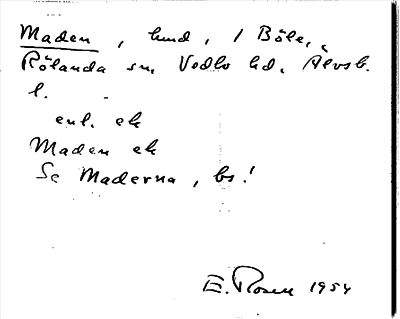 Maden, hmd, i Böle,
Rölanda sn, Vedbo hd, Älvsb.
l.
enl. ek
Maden ek
Se Maderna, bs!
E. Rosell 1954